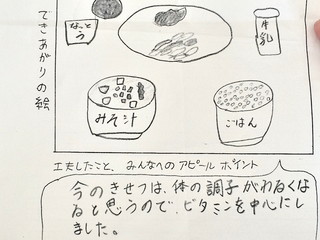 できあがりの絵
なっとう
牛乳
みそ汁
ごはん
工夫したこと、みんなへのアピールポイント
今のきせつは、体の調子がわるくな
ると思うので、ビタミンを中心にし
ました。